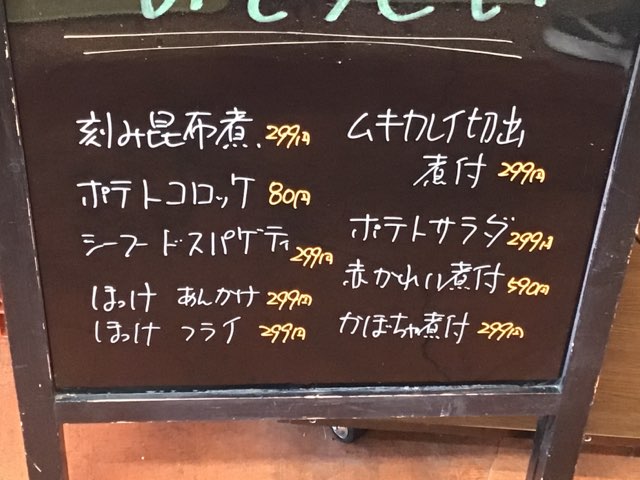 刻み昆布煮 299円
ポテトコロッケ 80円
シーフードスパゲティ 299円
ほっけ あんかけ 299円
ほっけ フライ 299円
ムキカレイ切出
煮付 299円
ポテトサラダ 299円
赤かれい煮付 590円
かぼちゃ煮付 299円